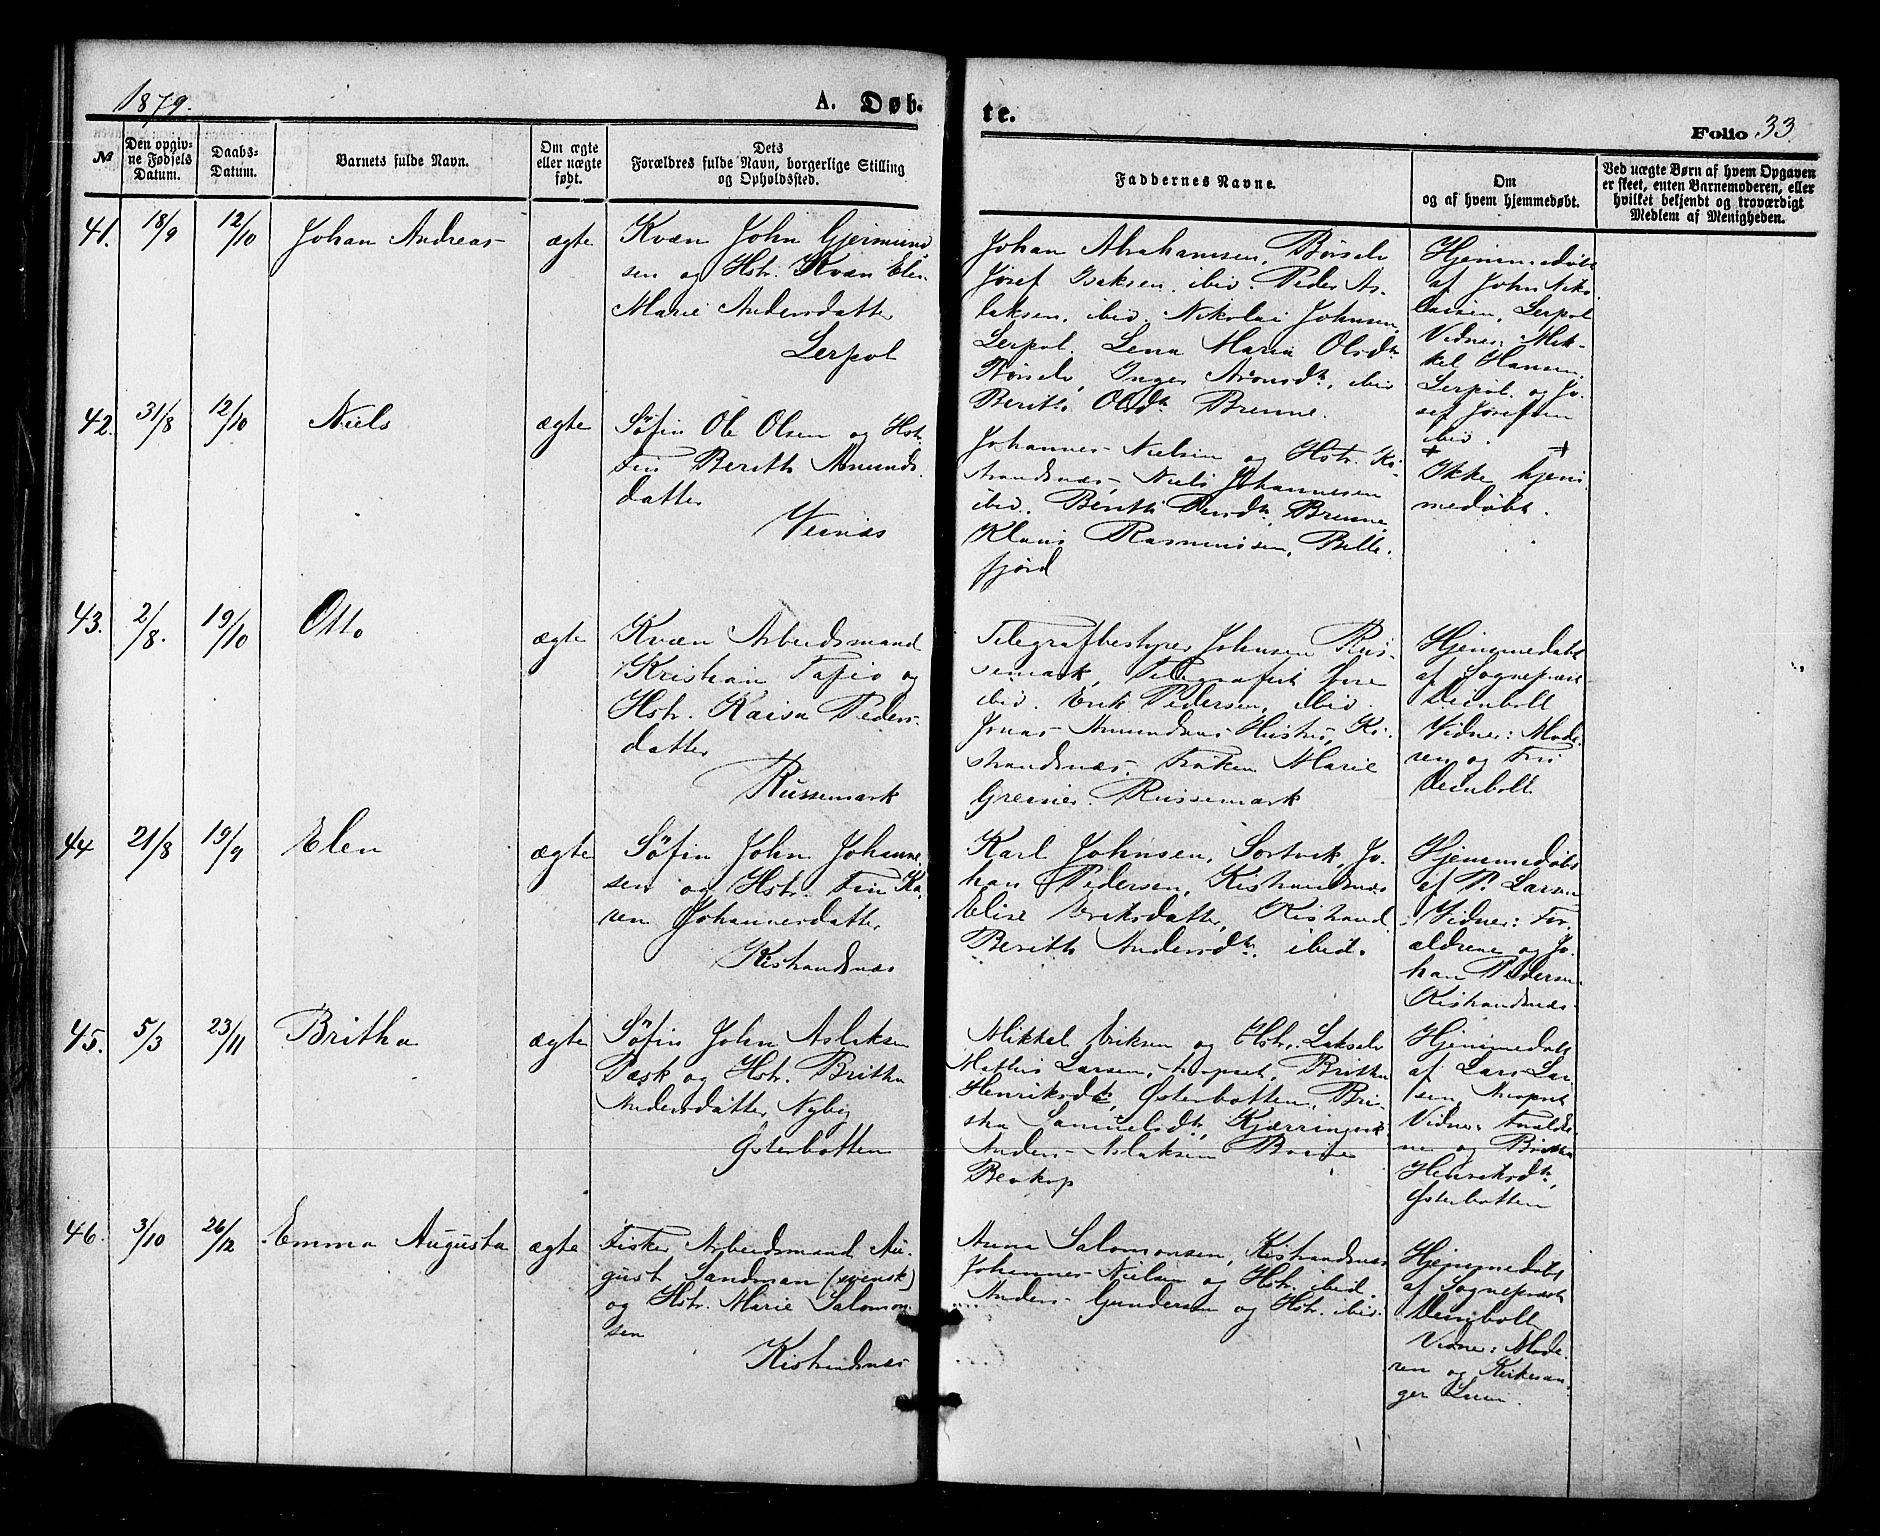 1879.
A. Døb-
te.
Folio 33
№
Den opgiv-
ne Fødsels
Datum.
Daabs-
Datum.
Barnets fulde Navn.
Om ægte
eller uægte
født.
Dets
Forældres fulde Navn, borgerlige Stilling
og Opholdssted.
Faddernes Navne.
Om
og af hvem hjemmedøbt.
Ved uægte Børn af hvem Opgaven
er skeet, enten Barnemoderen, eller
hvilket bekjendt og troværdigt
Medlem af Menigheden.
41. 18/9 12/10 Johan Andreas ægte
Kvæn John Gjermund
sen og Hstr. Kvæn Elen
Marie Andersdatter
Lerpol
Johan Abrahamsen, Børselv
Josef Isaksen, ibid. Peder As-
laksen, ibid. Nikolai Johnsen,
Lerpol. Lena Maria Olsdtr
Børselv, Inger Aronsdtr, ibid
Berith Olsdtr Brenne.
Hjemmedøbt
af John Niko
laisen, Lerpol
Vidner: Mik-
kel Hansen,
Lerpol. og Jo-
sef Josefsen
ibid.
42. 31/8 12/10 Niels ægte
Søfin Ole Olsen og Hstr.
Fin Berith Amunds
datter
Veinæs
Johannes Nielsen og Hstr. Ki-
strandsnæs, Niels Johannesen
ibid. Berith Persdtr, Brenne,
Klaus Rasmussen, Bille-
fjord
+ +
Ikke hjem
medøbt.
43. 2/8. 19/10 Otto ægte
Kvæn Arbeidsmand
Kristian Tapio og
Hstr. Kaisa Peders-
datter
Russemark
Telegrafbestyrer Johnsen Rus-
semark, Telegrafist
ibid. Erik Pedersen, ibid.
Jonas Amundsens Hustru, Ki-
strandsnæs. Frøken Marie
Greiner. Russemark
Hjemmedøbt
af Sognepræst
Deinboll
Vidner: Mode-
ren og Fru
Deinboll
44 21/8 19/9 Elen ægte
Søfin John Johanne-
sen og Hstr. Fin Ka-
ren Johannesdatter
Kistrandsnæs
Karl Johnsen, Sortvik, Jo-
han Pedersen, Kistrandsnæs
Elise Eriksdatter, Kistrand
Berith Andersdtr. ibid.
Hjemmedøbt
af P. Larsen
Vidner: For-
ældrene og Jo-
han Pedersen
Kistrandsnæs.
45. 5/3 23/11 Britha ægte
Søfin John Aslaksen
Pæsk og Hstr. Britha
Andersdatter Nyby
Østerbotten
Mikkel Eriksen og Hstr. Lakselv
Mathis Larsen, Avopset, Britha
Henriksdtr, Østerbotten, Bri-
tha Samuelsdtr, Kjærringvik
Anders Aslaksen
Beskop
Hjemmedøbt
af Lars Lar-
sen, Avopset
Vidner: Forældre-
ne og Britha
Henriksdtr,
Østerbotten
46. 3/10 26/12 Emma Augusta ægte
Fisker Arbeidsmand Au-
gust Sandman (svensk)
og Hstr. Marie Salomon-
sen
Kistrandsnæs
Anna Salomonsen, Kistrandsnæs
Johannes Nielsen og Hstr. ibid.
Anders Gundersen og Hstr. ibid.
Hjemmedøbt
af Sognepræst
Deinboll
Vidner: Mode-
ren og Kirkesan-
ger Lund.